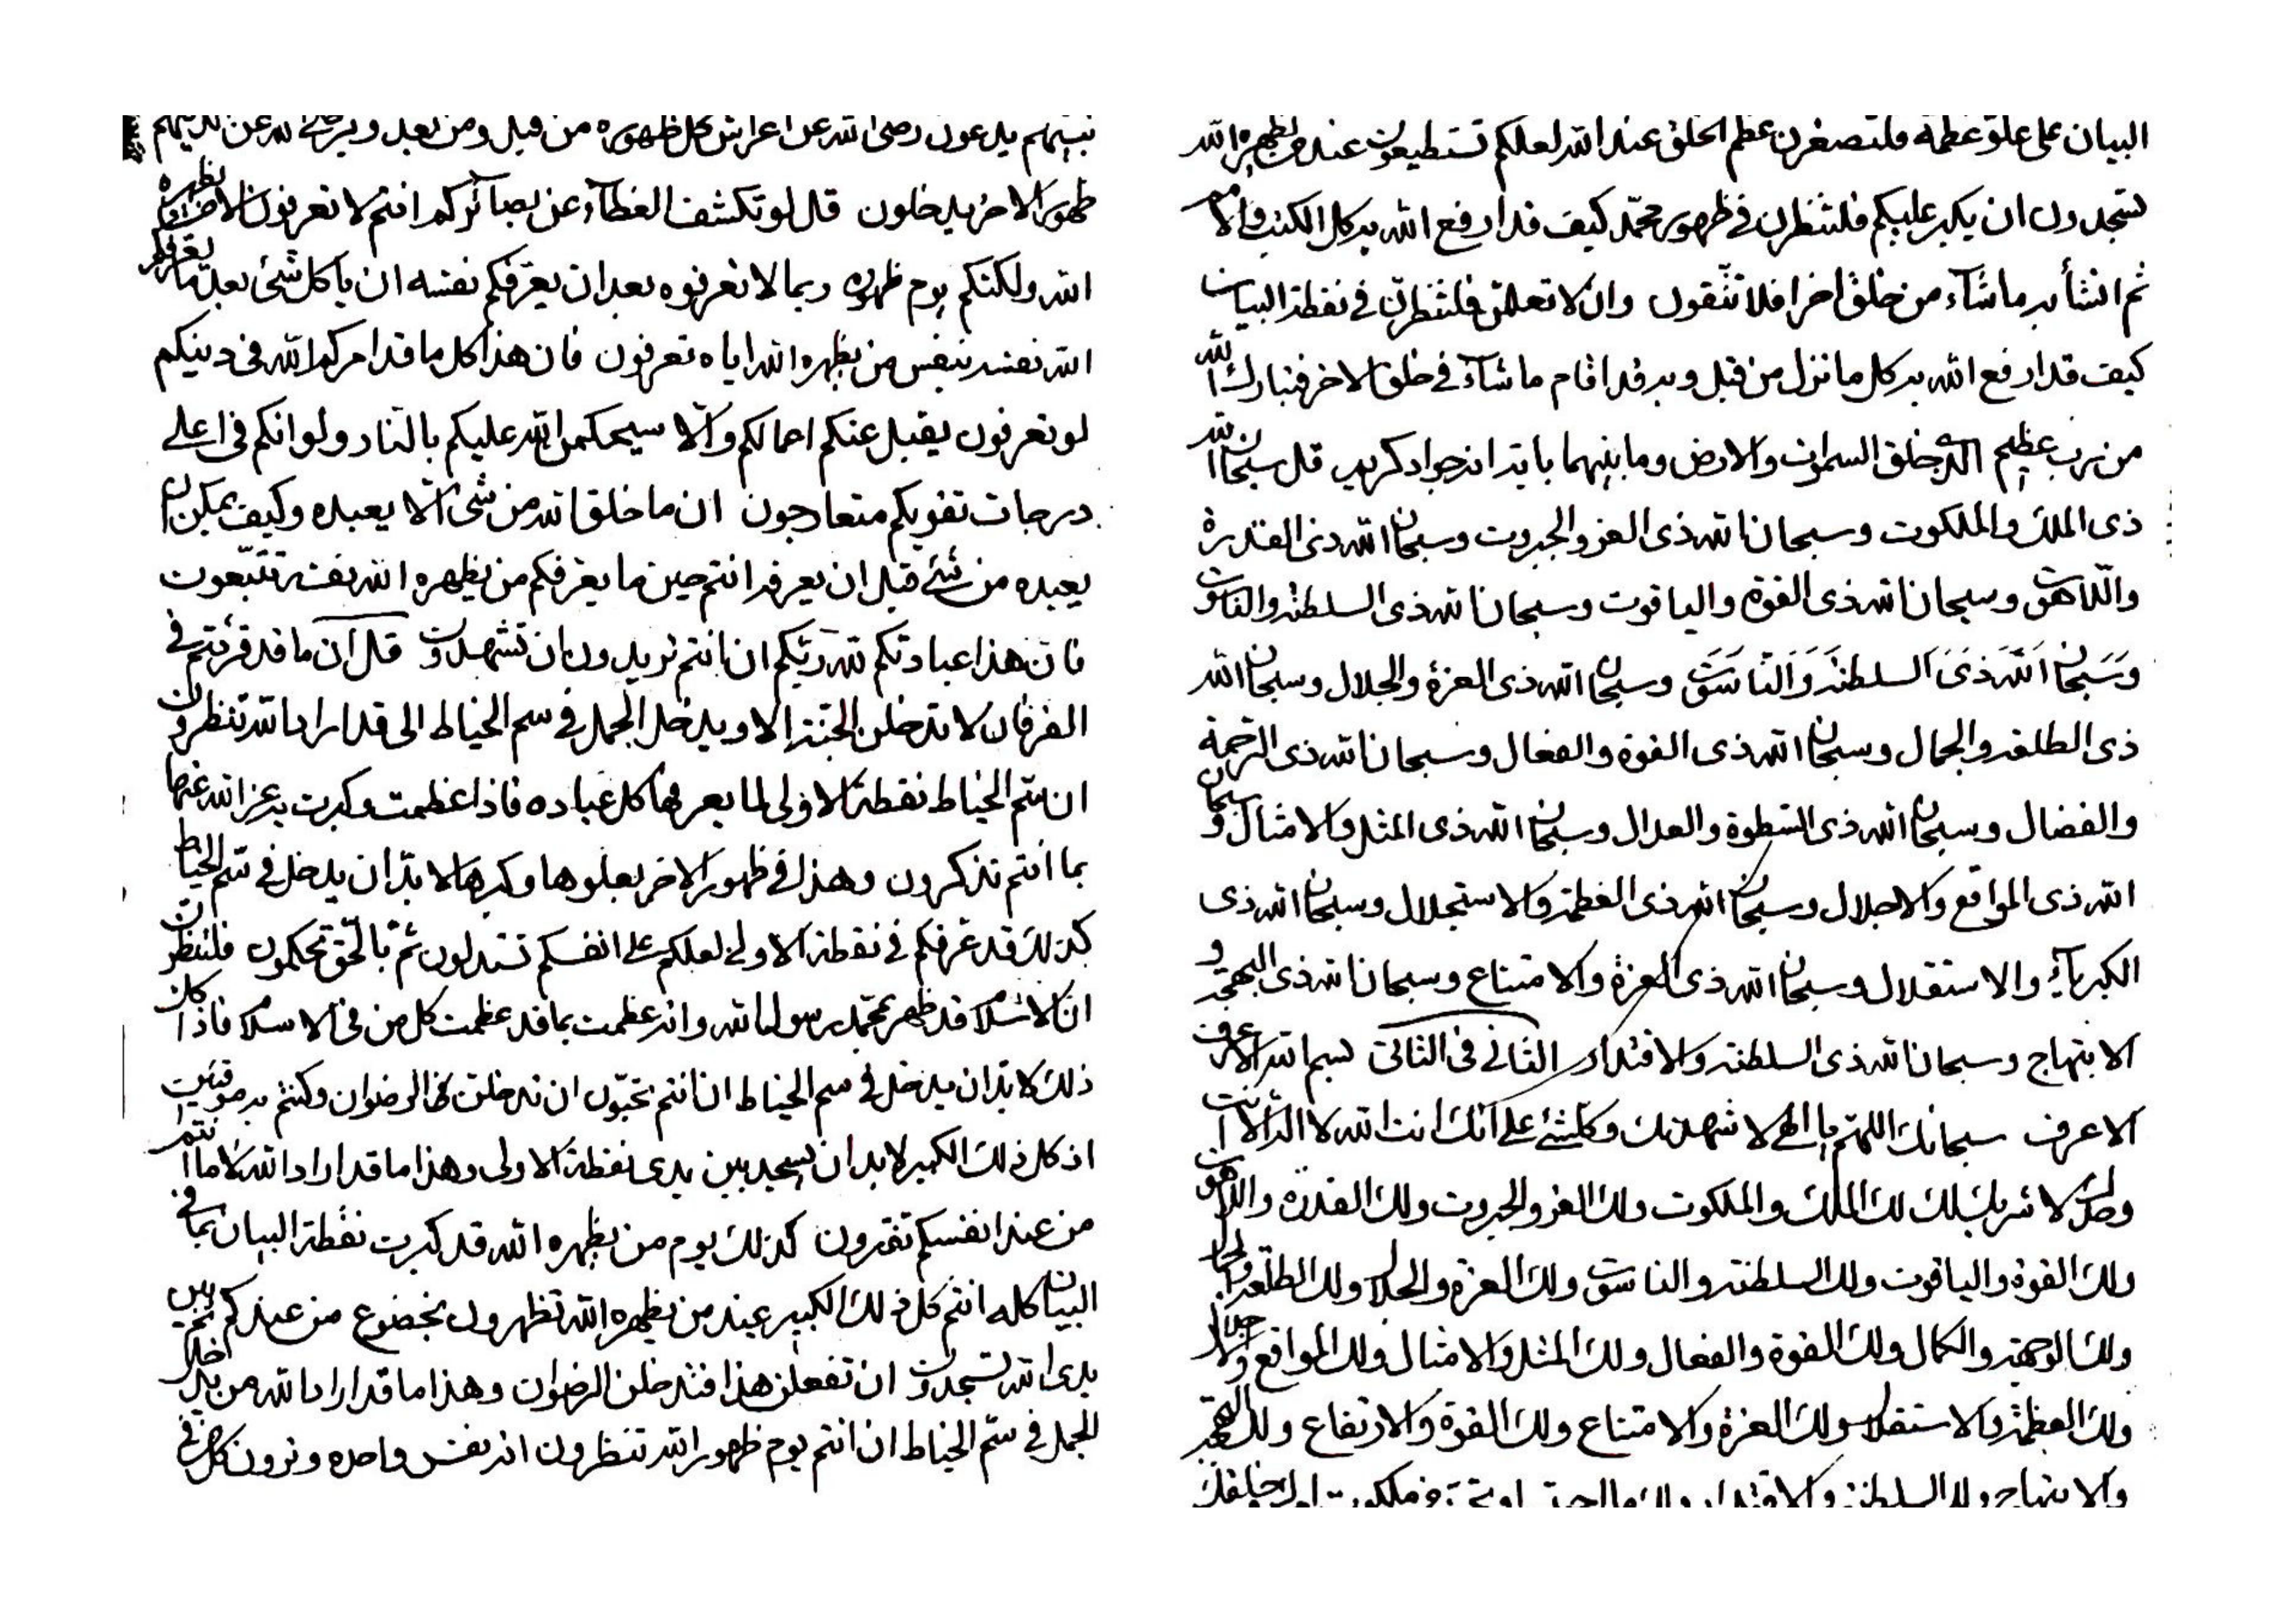 البيان على علو عظمه فلتصغرن عظم الخلق عند الله لعلكم تستطيعون عند من يظهره الله
تسجدون ان يكبر عليكم فلتنظرن في ظهور محمد كيف قد ارفع الله به كل الكتب والامم
ثم انشأ به ما شآء من خلق اخر افلا تتقون وان لا تعلمن فلتنظرن في نقطة البيان
كيف قد ارفع الله به كل ما نزل من قبل وبه قد اقام ما شآء في خلق الاخر فتبارك الله
من رب عظيم الذي خلق السموات والارض وما بينهما بايته انه جواد كريم قل سبحان الله
ذى الملك والملكوت وسبحان الله ذى العز والجبروت وسبحان الله ذى القدرة
واللاهوت وسبحان الله ذى القوة والياقوت وسبحان الله ذى السلطنة والناسوت
وسبحان الله ذى السلطنة والناسوت وسبحان الله ذى العزة والجلال وسبحان الله
ذى الطلعة والجمال وسبحان الله ذى القوة والفعال وسبحان الله ذى الرحمة
والفضال وسبحان الله ذى السطوة والعدال وسبحان الله ذى المثل والامثال وسبحان
الله ذى المواقع والاجلال وسبحان الله ذى العظمة والاستجلال وسبحان الله ذى
الكبريآء والاستقلال وسبحان الله ذى العزة والامتناع وسبحان الله ذى البهجة و
الابتهاج وسبحان الله ذى السلطنة والاقتدار الثاني في الثاني بسم الله الاعرف
الاعرف سبحانك اللهم يا الهي لاشهدنك وكلشئ على انك انت الله لا اله الا انت
وحدك لا شريك لك لك الملك والملكوت ولك العز والجبروت ولك القدرة واللاهوت
ولك القوة والياقوت ولك السلطنة والناسوت ولك العزة والجلال ولك الطلعة والجمال
ولك الوجهة والكمال ولك القوة والفعال ولك المثل والامثال ولك المواقع والاجلال
ولك العظمة والاستقلال ولك العزة والامتناع ولك القوة والارتفاع ولك البهجة
والابتهاج ولك السلطنة والاقتدار ولك ما احببت او تحب في ملكوت امرك وخلقك
نبيهم يدعون رضى الله عن اعراش كل ظهوره من قبل ومن بعد
ظهور الاخر يدخلون قل لو تكشف الغطآء عن بصآئركم انتم لا تعرفون الا من يظهره
الله ولكنكم يوم ظهوره ربما لا تعرفوه بعد ان يعرفكم نفسه ان يا كل شئ بعد ما يعرفكم
الله نفسه بنفس من يظهره الله اياه تعرفون فان هذا كل ما قد امركم الله في دينكم
لو تعرفون يقبل عنكم اعمالكم والا سيحكمن الله عليكم بالنار ولو انكم في اعلى
درجات تقويكم متعارجون ان ما خلق الله من شئ الا يعبده وكيف يمكن ان
يعبده من شئ قبل ان يعرفه انتم حين ما يعرفكم من يظهره الله نفسه تتبعون
فان هذا عبادتكم لله ربكم ان انتم تريدون ان تشهدون قل ان ما قد قرئتم في
الفرقان لا تدخلن الجنة الا ويدخل الجمل في سم الخياط الى قد اراد الله تنظرون
ان سم الخياط نقطة الاولى لما يعرفها كل عباده فاذا عظمت وكبرت يد عز الله عنها
بما انتم تذكرون وهذا في ظهور الاخر بعلوها وكبرها لا بد ان يدخل في سم الخياط
كذلك قد عرفكم في نقطة الاولى لعلكم على انفسكم تستدلون ثم بالحق تحكمون فلتنظرن
ان الاسلام قد ظهر بمحمد رسول الله وانه عظمت بما قد عظمت كل من في الاسلام فاذا كان
ذلك لا بد ان يدخل في سم الخياط ان انتم تحبون ان تدخلن في الرضوان وكنتم به موقنين
اذ كل ذلك الكبير لا بد ان يسجد بين يدى نقطة الاولى وهذا ما قد اراد الله لا ما انتم
من عند انفسكم تفترون كذلك يوم من يظهره الله قد كبرت نقطة البيان بما في
البيان كله انتم كل ذلك الكبير عند من يظهره الله تظهرون بخضوع من عندكم ثم بين
يدى الله تسجدون ان تفعلن هذا فتدخلن الرضوان وهذا ما قد اراد الله من يدخل
الجمل في سم الخياط ان انتم يوم ظهور الله تنظرون انه نفس واحده وترون كل من في